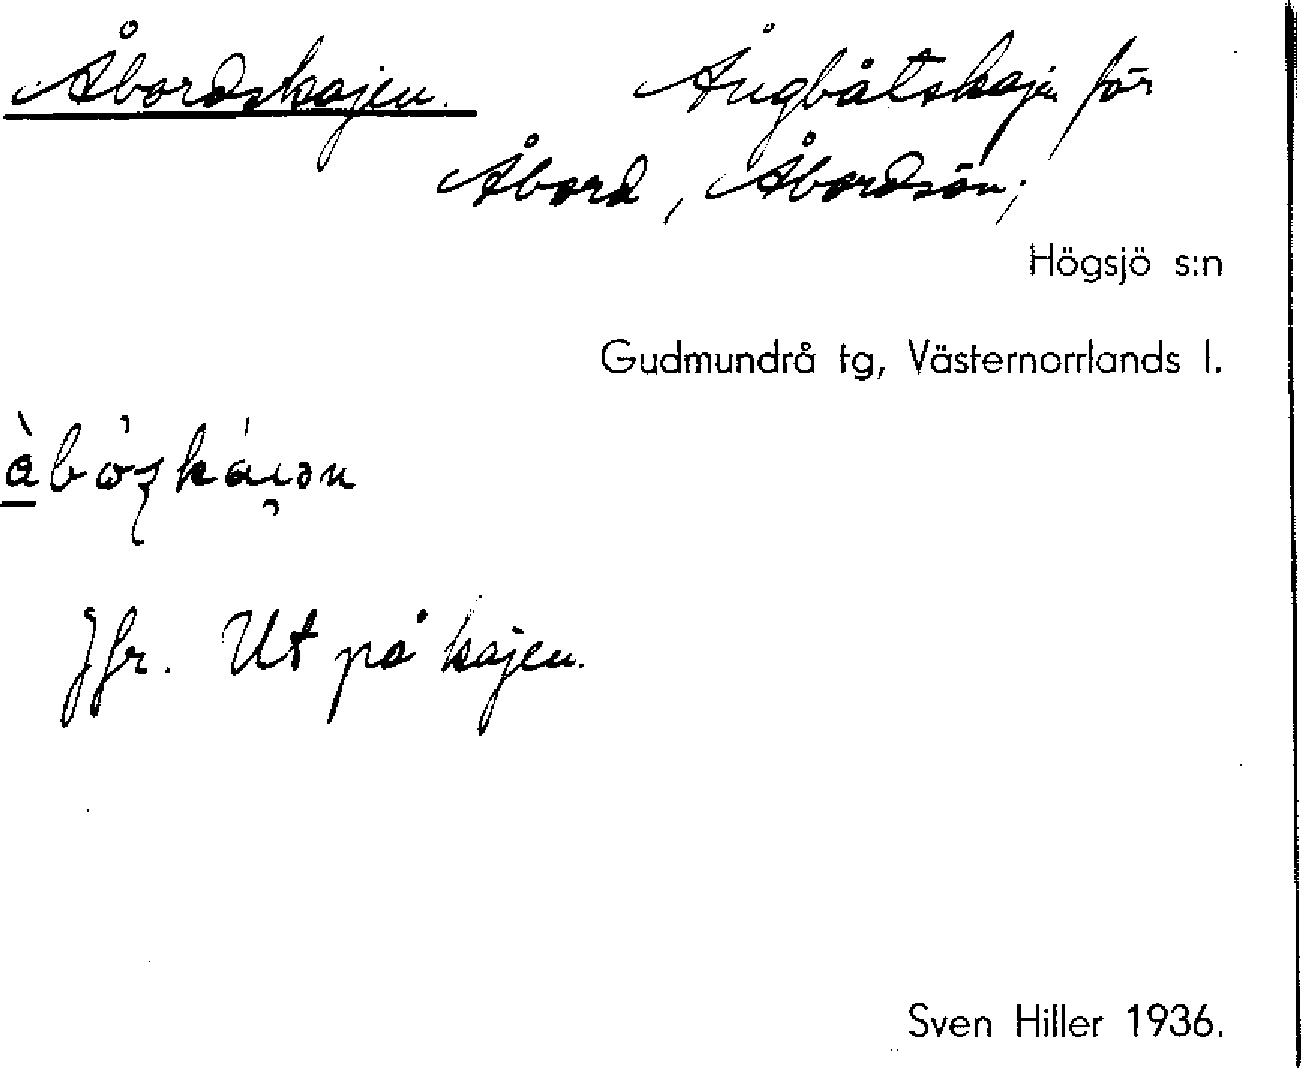 Åbordskajen. Ångbåtskajen för
Åbord, Åbordsön;
Högsjö s:n
Gudmundrå tg, Västernorrlands l.
Jfr. Ut på kajen.
Sven Hiller 1936.